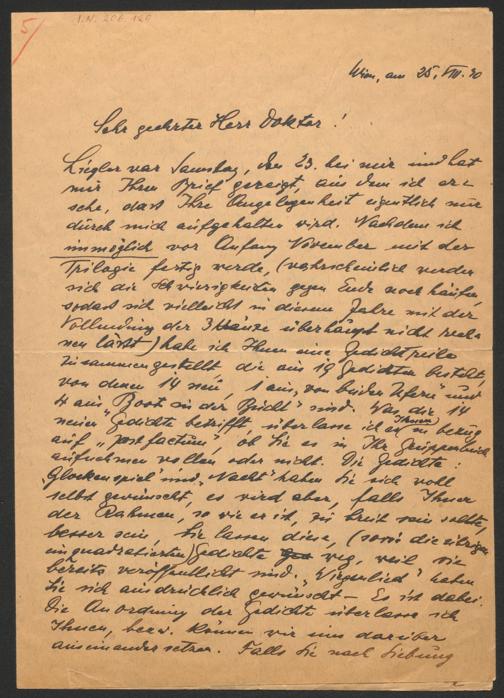 5/
I.N. 206.120
Wien, am 25. VIII. 30
Sehr geehrter Herr Doktor!
Liegler war Samstag, den 23. bei mir und hat
mir Ihren Brief gezeigt, aus dem ich er-
sehe, dass Ihre Angelegenheit eigentlich nur
durch mich aufgehalten wird. Nachdem ich
unmöglich vor Anfang November mit der
Trilogie fertig werde, (wahrscheinlich werden
sich die Schwierigkeiten gegen Ende noch häufen,
sodass sich vielleicht in diesem Jahre mit der
Vollendung der 3 überhaupt nicht rech-
nen lässt) habe ich Ihnen eine Gedichtreihe
zusammengestellt die aus 19 Gedichten besteht,
von denen 14 neu, 1 aus „von beiden Ufern" und
4 aus „Boot in der Bucht" sind. Was die 14
neuen Gedichte betrifft, überlasse ich es Ihnen in bezug
auf „post factum", ob Sie es in Ihr Gruppenbuch
aufnehmen wollen oder nicht. Die Gedichte:
„Glockenspiel" und „Nacht" haben Sie sich wohl
selbst gewünscht, es wird aber, falls Ihnen
der Rahmen, so wie er ist, zu breit sein sollte,
besser sein, Sie lassen diese, (sowie die übrigen
einquadratierten) Gedichte weg, weil sie
bereits veröffentlicht sind. „Wiegenlied" haben
Sie sich ausdrücklich gewünscht – Es ist dabei.
Die Anordnung der Gedichte überlasse ich
Ihnen, bezw. können wir uns darüber
auseinandersetzen. Falls Sie nach Siebung